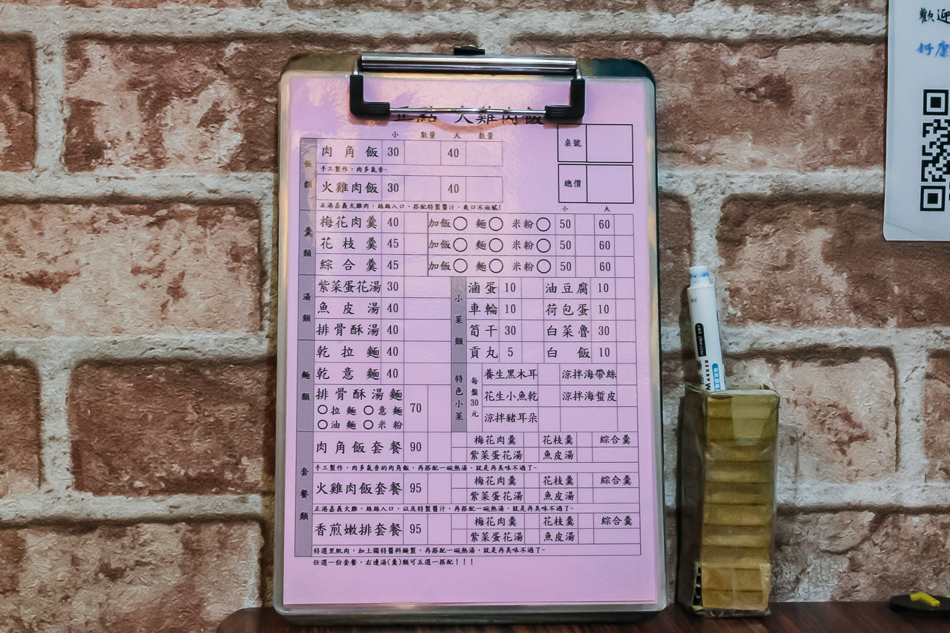 火雞肉飯
小 數量 大 數量
桌號
總價
飯類
肉角飯 30 40
手工製作,肉多氣香~
火雞肉飯 30 40
正港嘉義火雞肉,絲絲入口,搭配特製醬汁,爽口不油膩!
小 大
羹類
梅花肉羹 40 加飯○ 麵○ 米粉○ 50 60
花枝羹 45 加飯○ 麵○ 米粉○ 50 60
綜合羹 45 加飯○ 麵○ 米粉○ 50 60
湯類
紫菜蛋花湯 30
魚皮湯 40
排骨酥湯 40
小菜類
滷蛋 10 油豆腐 10
車輪 10 荷包蛋 10
筍干 30 白菜魯 30
貢丸 5 白飯 10
麵類
乾拉麵 40
乾意麵 40
排骨酥湯麵 70
○拉麵 ○意麵
○油麵 ○米粉
特色小菜
每盤30元
養生黑木耳 涼拌海帶絲
花生小魚乾 涼拌海蜇皮
涼拌豬耳朵
套餐類
肉角飯套餐 90 梅花肉羹 花枝羹 綜合羹
紫菜蛋花湯 魚皮湯
手工製作,肉多氣香的肉角飯,再搭配一碗熱湯,就是再美味不過了~
火雞肉飯套餐 95 梅花肉羹 花枝羹 綜合羹
紫菜蛋花湯 魚皮湯
正港嘉義火雞,絲絲入口,以及特製醬汁,再搭配一碗熱湯,就是再美味不過了~
香煎嫩排套餐 95 梅花肉羹 花枝羹 綜合羹
紫菜蛋花湯 魚皮湯
特選里肌肉,加上獨特醬料醃製,再搭配一碗熱湯,就是再美味不過了~
任選一份套餐,右邊湯(羹)類可五選一搭配!!!
歡迎